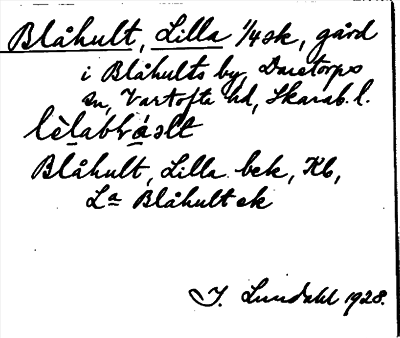 Blåhult, Lilla 1/4 sk, gård
i Blåhults by, Daretorps
sn, Vartofta hd, Skarab. l.
Blåhult, Lilla bek, Kb,
La Blåhult ek
J. Lundahl 1928.